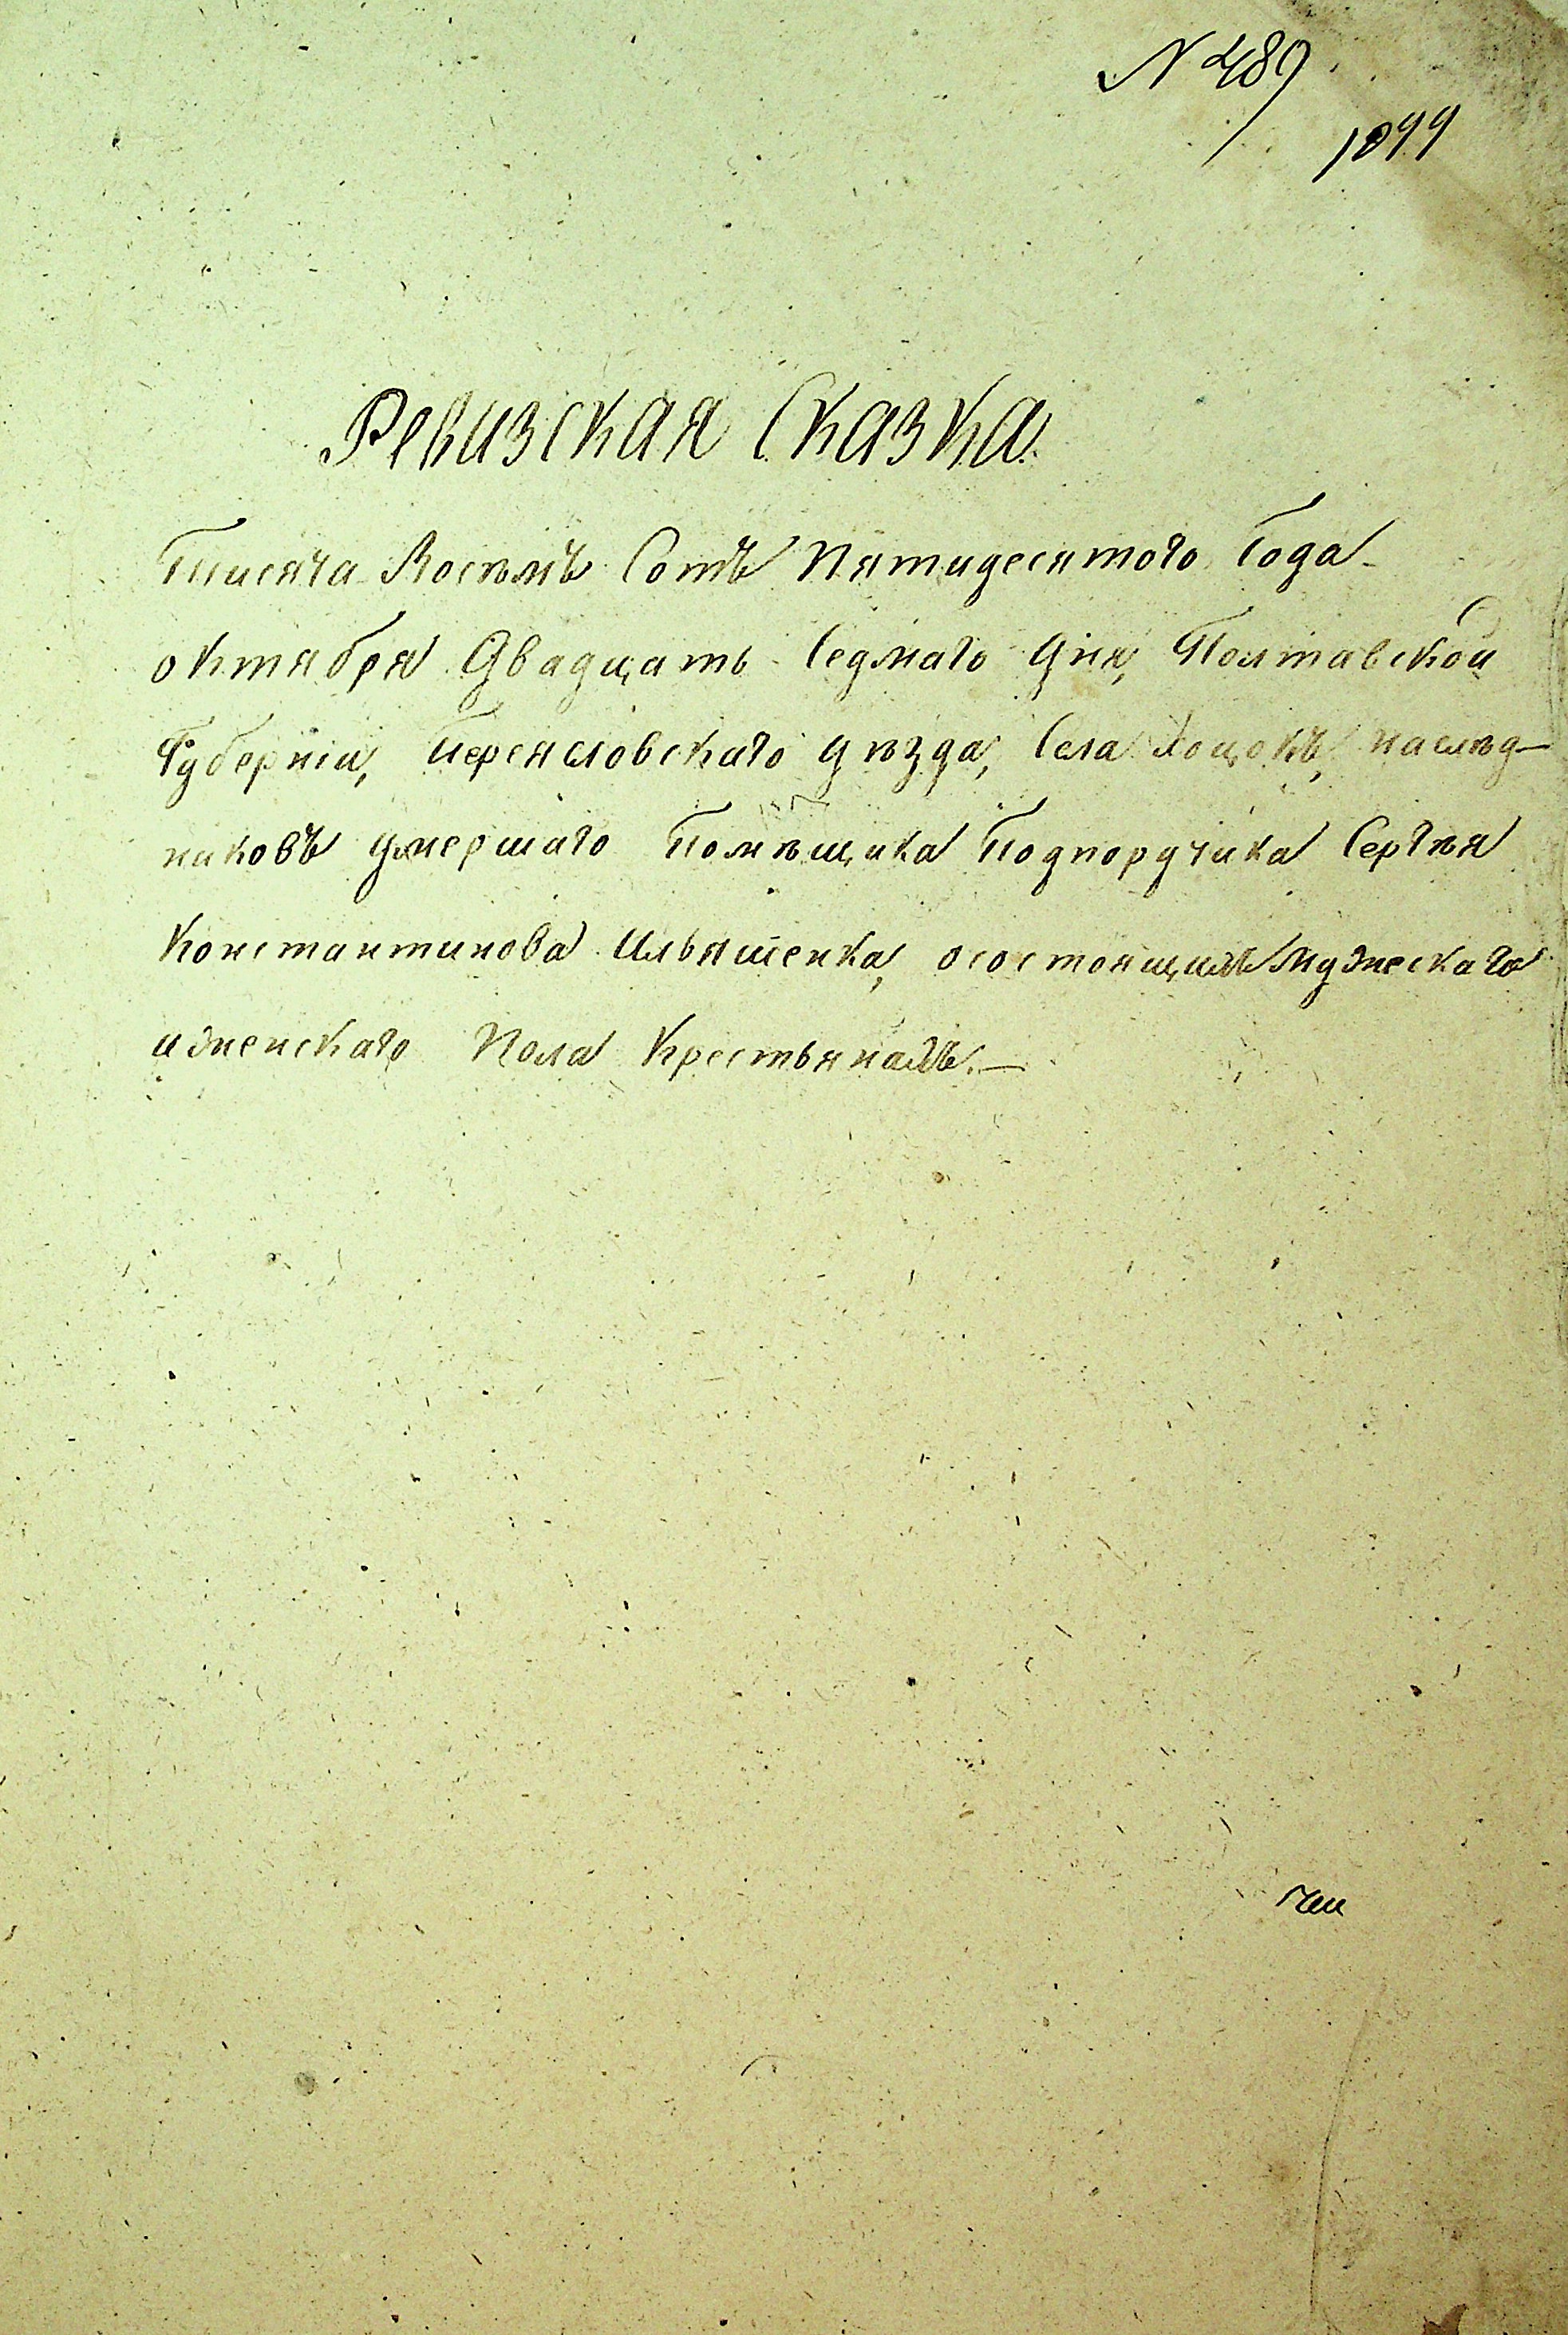 N 489
1099
Ревизская Сказка
Тысяча Восѣмъ Сотъ Пятидесятого Года
октября Двадцать Седмаго дня, Полтавской
Губернiи, Переясловскаго уѣзда, Села Хоцокъ, наслѣд-
никовъ умершаго Помѣщика Подпоручика Сергѣя
Константинова Ильяшенка, осостоящимъ Мужескаго
иженскаго Пола Крестьянамъ.—